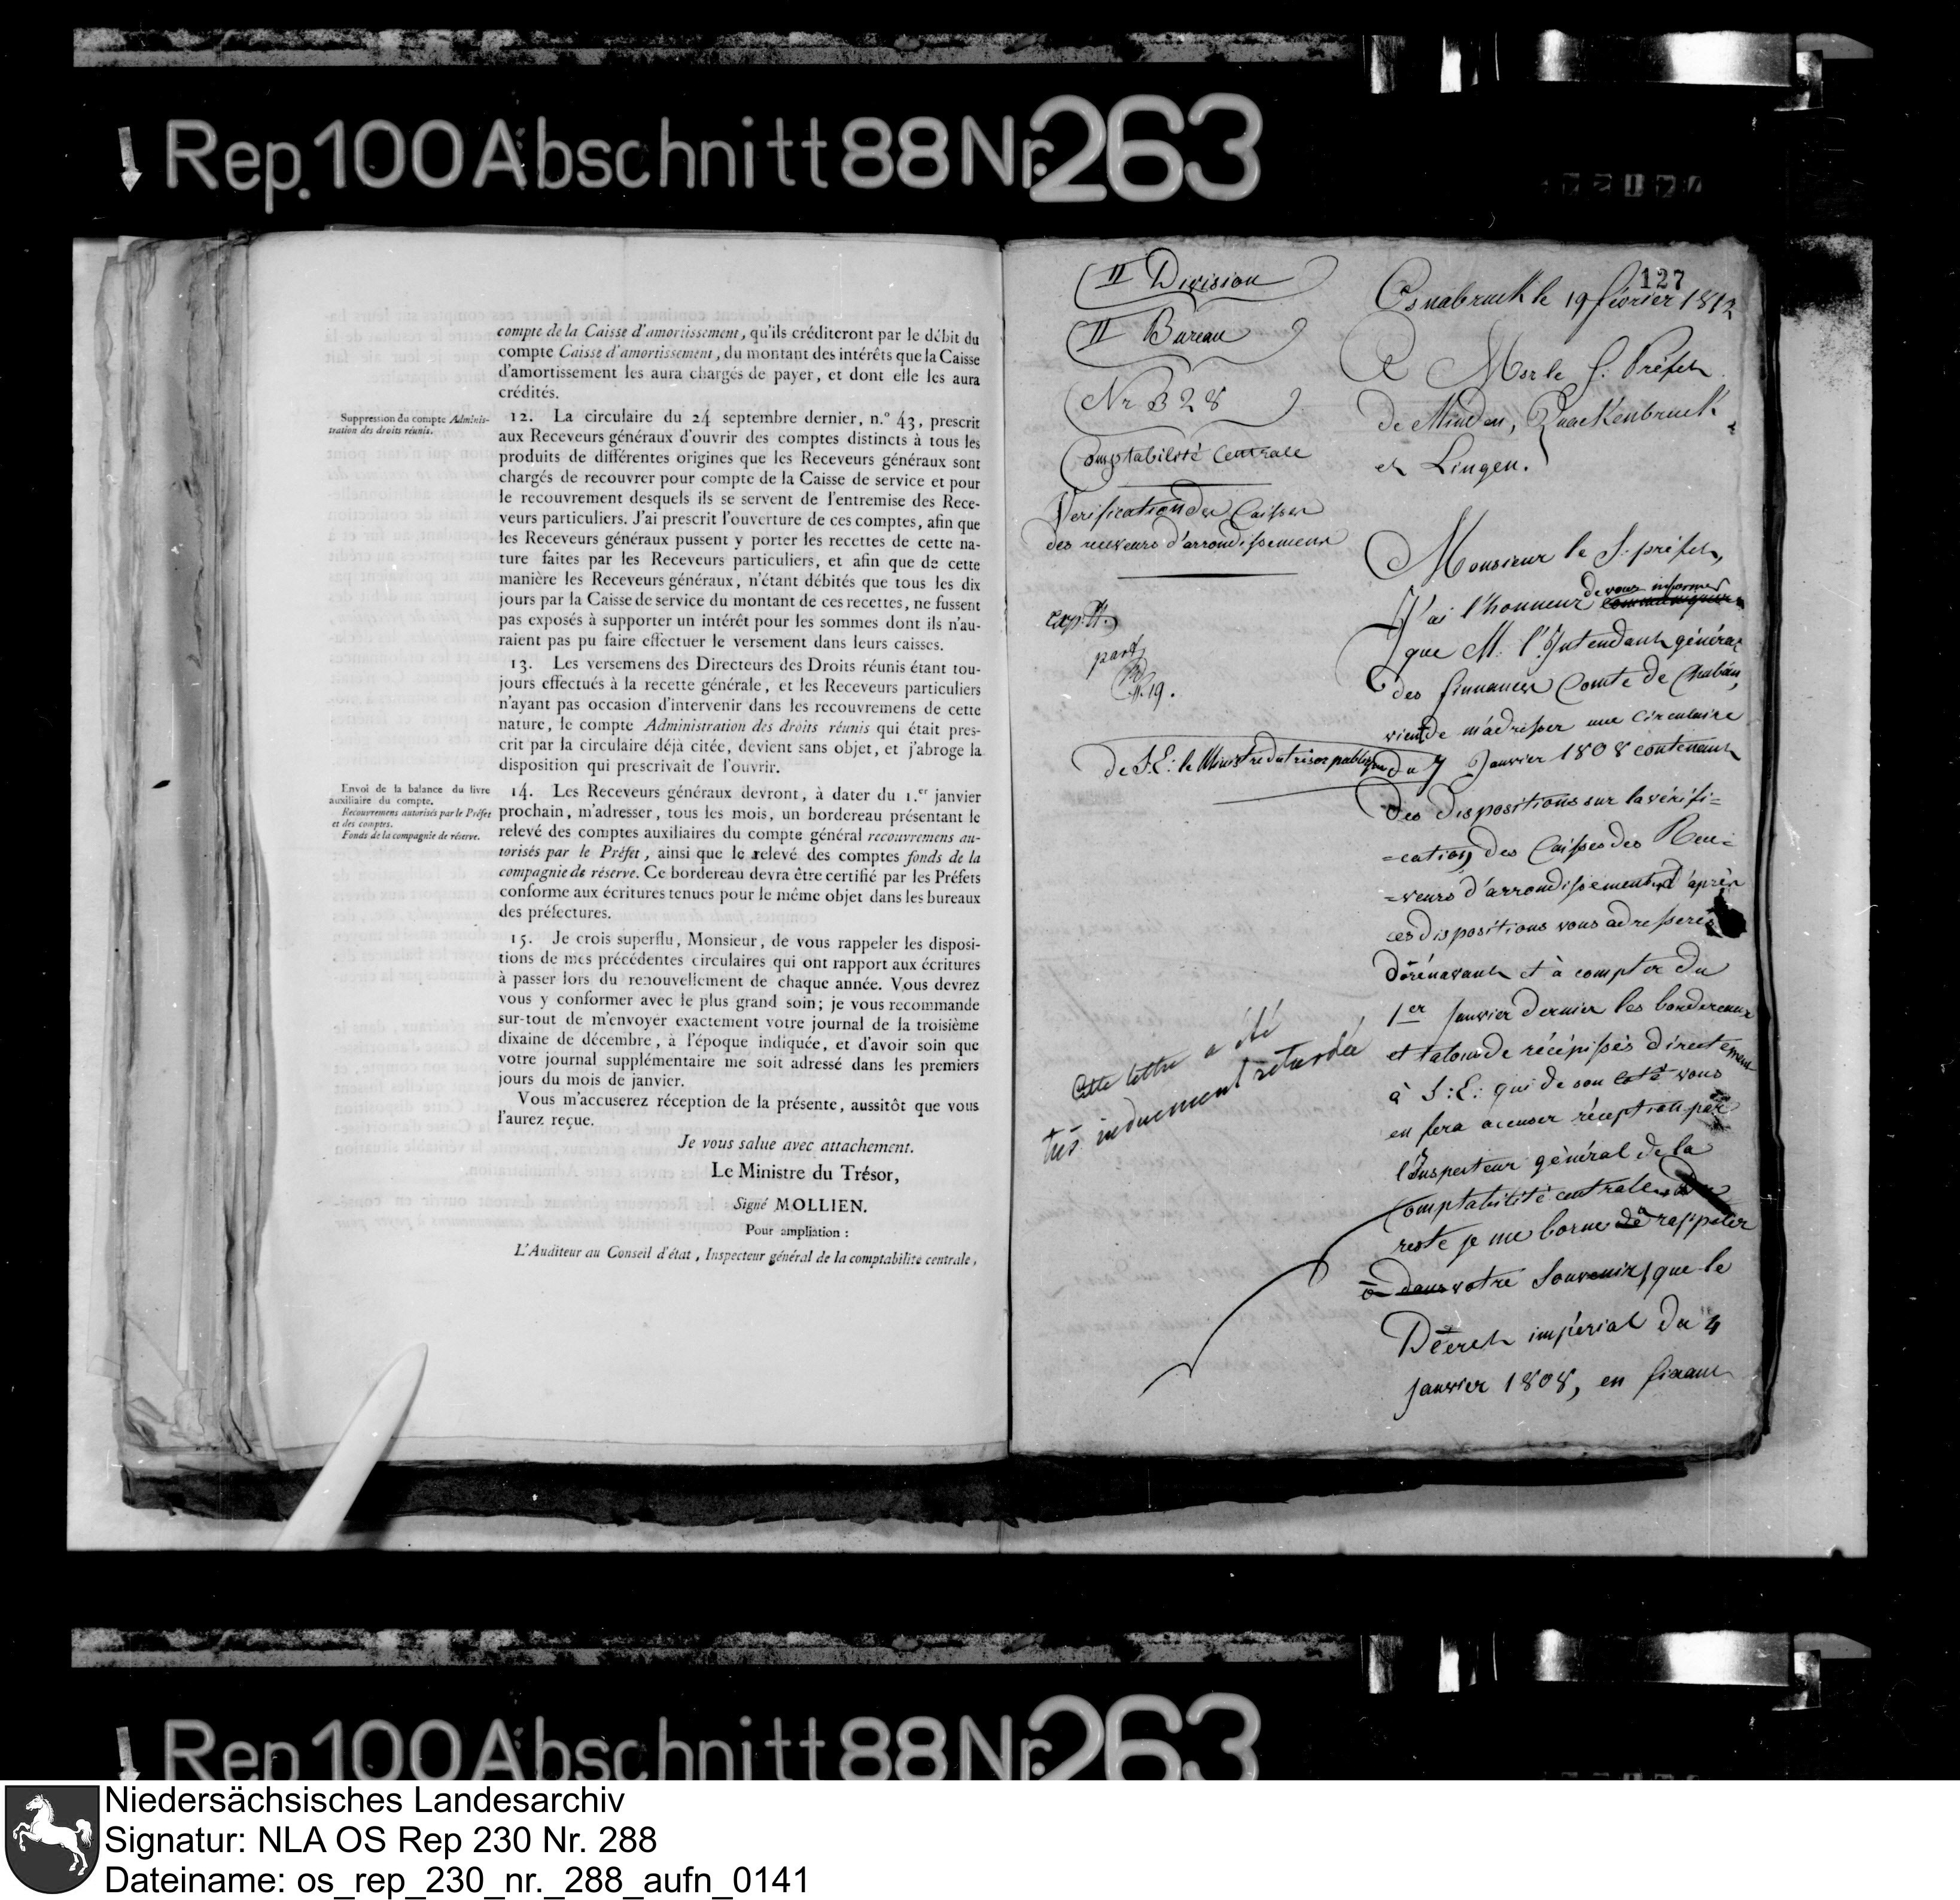 Rep. 100 Abschnitt 88 Nr. 263
compte de la Caisse d'amortissement, qu'ils créditeront par le débit du
compte Caisse d'amortissement, du montant des intérêts que la Caisse
d'amortissement les aura chargés de payer, et dont elle les aura
crédités.
Suppression du compte Adminis-
tration des droits réunis.
12. La circulaire du 24 septembre dernier, n.º 43, prescrit
aux Receveurs généraux d'ouvrir des comptes distincts à tous les
produits de différentes origines que les Receveurs généraux sont
chargés de recouvrer pour compte de la Caisse de service et pour
le recouvrement desquels ils se servent de l'entremise des Rece-
veurs particuliers. J'ai prescrit l'ouverture de ces comptes, afin que
les Receveurs généraux pussent y porter les recettes de cette na-
ture faites par les Receveurs particuliers, et afin que de cette
manière les Receveurs généraux, n'étant débités que tous les dix
jours par la Caisse de service du montant de ces recettes, ne fussent
pas exposés à supporter un intérêt pour les sommes dont ils n'au-
raient pas pu faire effectuer le versement dans leurs caisses.
13. Les versemens des Directeurs des Droits réunis étant tou-
jours effectués à la recette générale, et les Receveurs particuliers
n'ayant pas occasion d'intervenir dans les recouvremens de cette
nature, le compte Administration des droits réunis qui était pres-
crit par la circulaire déjà citée, devient sans objet, et j'abroge la
disposition qui prescrivait de l'ouvrir.
Envoi de la balance du livre
auxiliaire du compte.
Recouvremens autorisés par le Préfet
et des comptes.
Fonds de la compagnie de réserve.
14. Les Receveurs généraux devront, à dater du 1.er janvier
prochain, m'adresser, tous les mois, un bordereau présentant le
relevé des comptes auxiliaires du compte général recouvremens au-
torisés par le Préfet, ainsi que le relevé des comptes fonds de la
compagnie de réserve. Ce bordereau devra être certifié par les Préfets
conforme aux écritures tenues pour le même objet dans les bureaux
des préfectures.
15. Je crois superflu, Monsieur, de vous rappeler les disposi-
tions de mes précédentes circulaires qui ont rapport aux écritures
à passer lors du renouvellement de chaque année. Vous devrez
vous y conformer avec le plus grand soin; je vous recommande
sur-tout de m'envoyer exactement votre journal de la troisième
dixaine de décembre, à l'époque indiquée, et d'avoir soin que
votre journal supplémentaire me soit adressé dans les premiers
jours du mois de janvier.
Vous m'accuserez réception de la présente, aussitôt que vous
l'aurez reçue.
Je vous salue avec attachement.
Le Ministre du Trésor,
Signé MOLLIEN.
Pour ampliation :
L'Auditeur au Conseil d'état, Inspecteur général de la comptabilité centrale,
II Division
II Bureau
Nr B 28
Comptabilité Centrale
Verification des Caisses
des receveurs d'arrondissement
19.
de S. E: le Ministre du trésor public
Cette lettre a été
très induement retardée
127
Osnabruck le 19 février 1812
A Msr le S. Préfet
de Minden, Quackenbruck
et Lingen.
Monsieur le S. préfet,
J'ai l'honneur de vous informer
que M. l'Intendant général
des finnances Comte de Chaban,
vient de m'adresser une circulaire
du 7 Janvier 1808 contenant
des dispositions sur la vérifi=
=cation des Caisses des Rece=
=veurs d'arrondissement. d'après
ces dispositions vous adresserez
dorénavant et à compter du
1er janvier dernier les bordereaux
et talons de récépissés directement
à S: E: qui de son coté vous
en fera accuser réception par
l'Inspecteur général de la
Comptabilité centrale. Du
reste je me borne de rappeler
à dans votre Souvenir, que le
Décret impérial du 4
janvier 1808, en fixant
Rep. 100 Abschnitt 88 Nr. 263
Niedersächsisches Landesarchiv
Signatur: NLA OS Rep 230 Nr. 288
Dateiname: os_rep_230_nr._288_aufn_0141